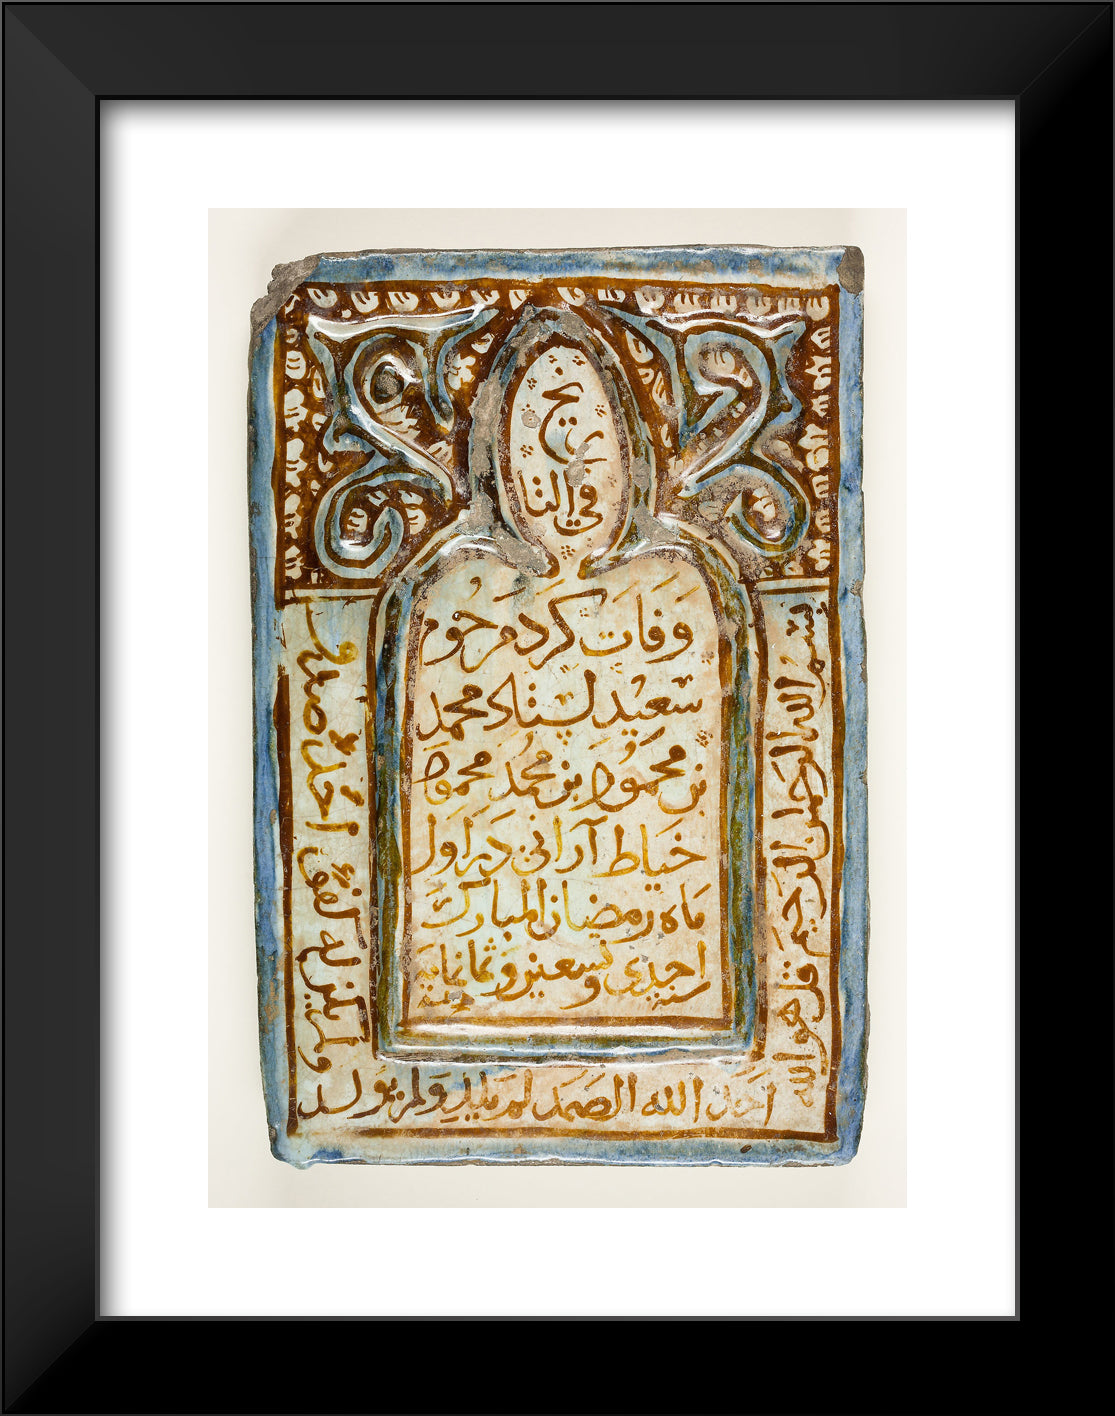 في التا
ريخ
وَفَات كرد مَرحُوم
سعيد استاد محمد
بن محمود بن محمد محمود
خياط آرانی در اول
ماه رمضان المبارك
احدی و تسعین و ثمانمایه
سنه
بسم الله الرحمن الرحیم قل هو الله
احد الله الصمد لم یلد ولم یولد
ولم یکن له کفوا احد صدق